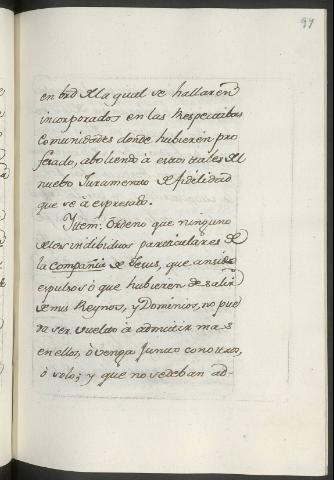 97
en ôrd de la qual se hallaren
incorporados en las Respectibas
Comunidades donde hubieren pro
fesado, aboliendo à estos tales del
nuebo Juramento de fidelidad
que se à espresado.
Jtem: Ordeno que ninguno
de los indibidios particulares de
la Compañia de Jesus, que an sido
espulsos ò que hubieren de salir
de mis Reynos, y Dominios, no pue
da ser vuelto à admitir mas
en ellos, ò venga Junto con otros,
ò solo; y que no se deban ad-